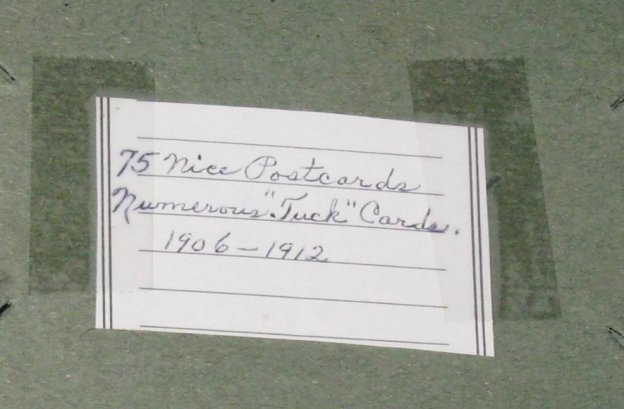 75 Nice Postcards
Numerous "Tuck" Cards.
1906-1912